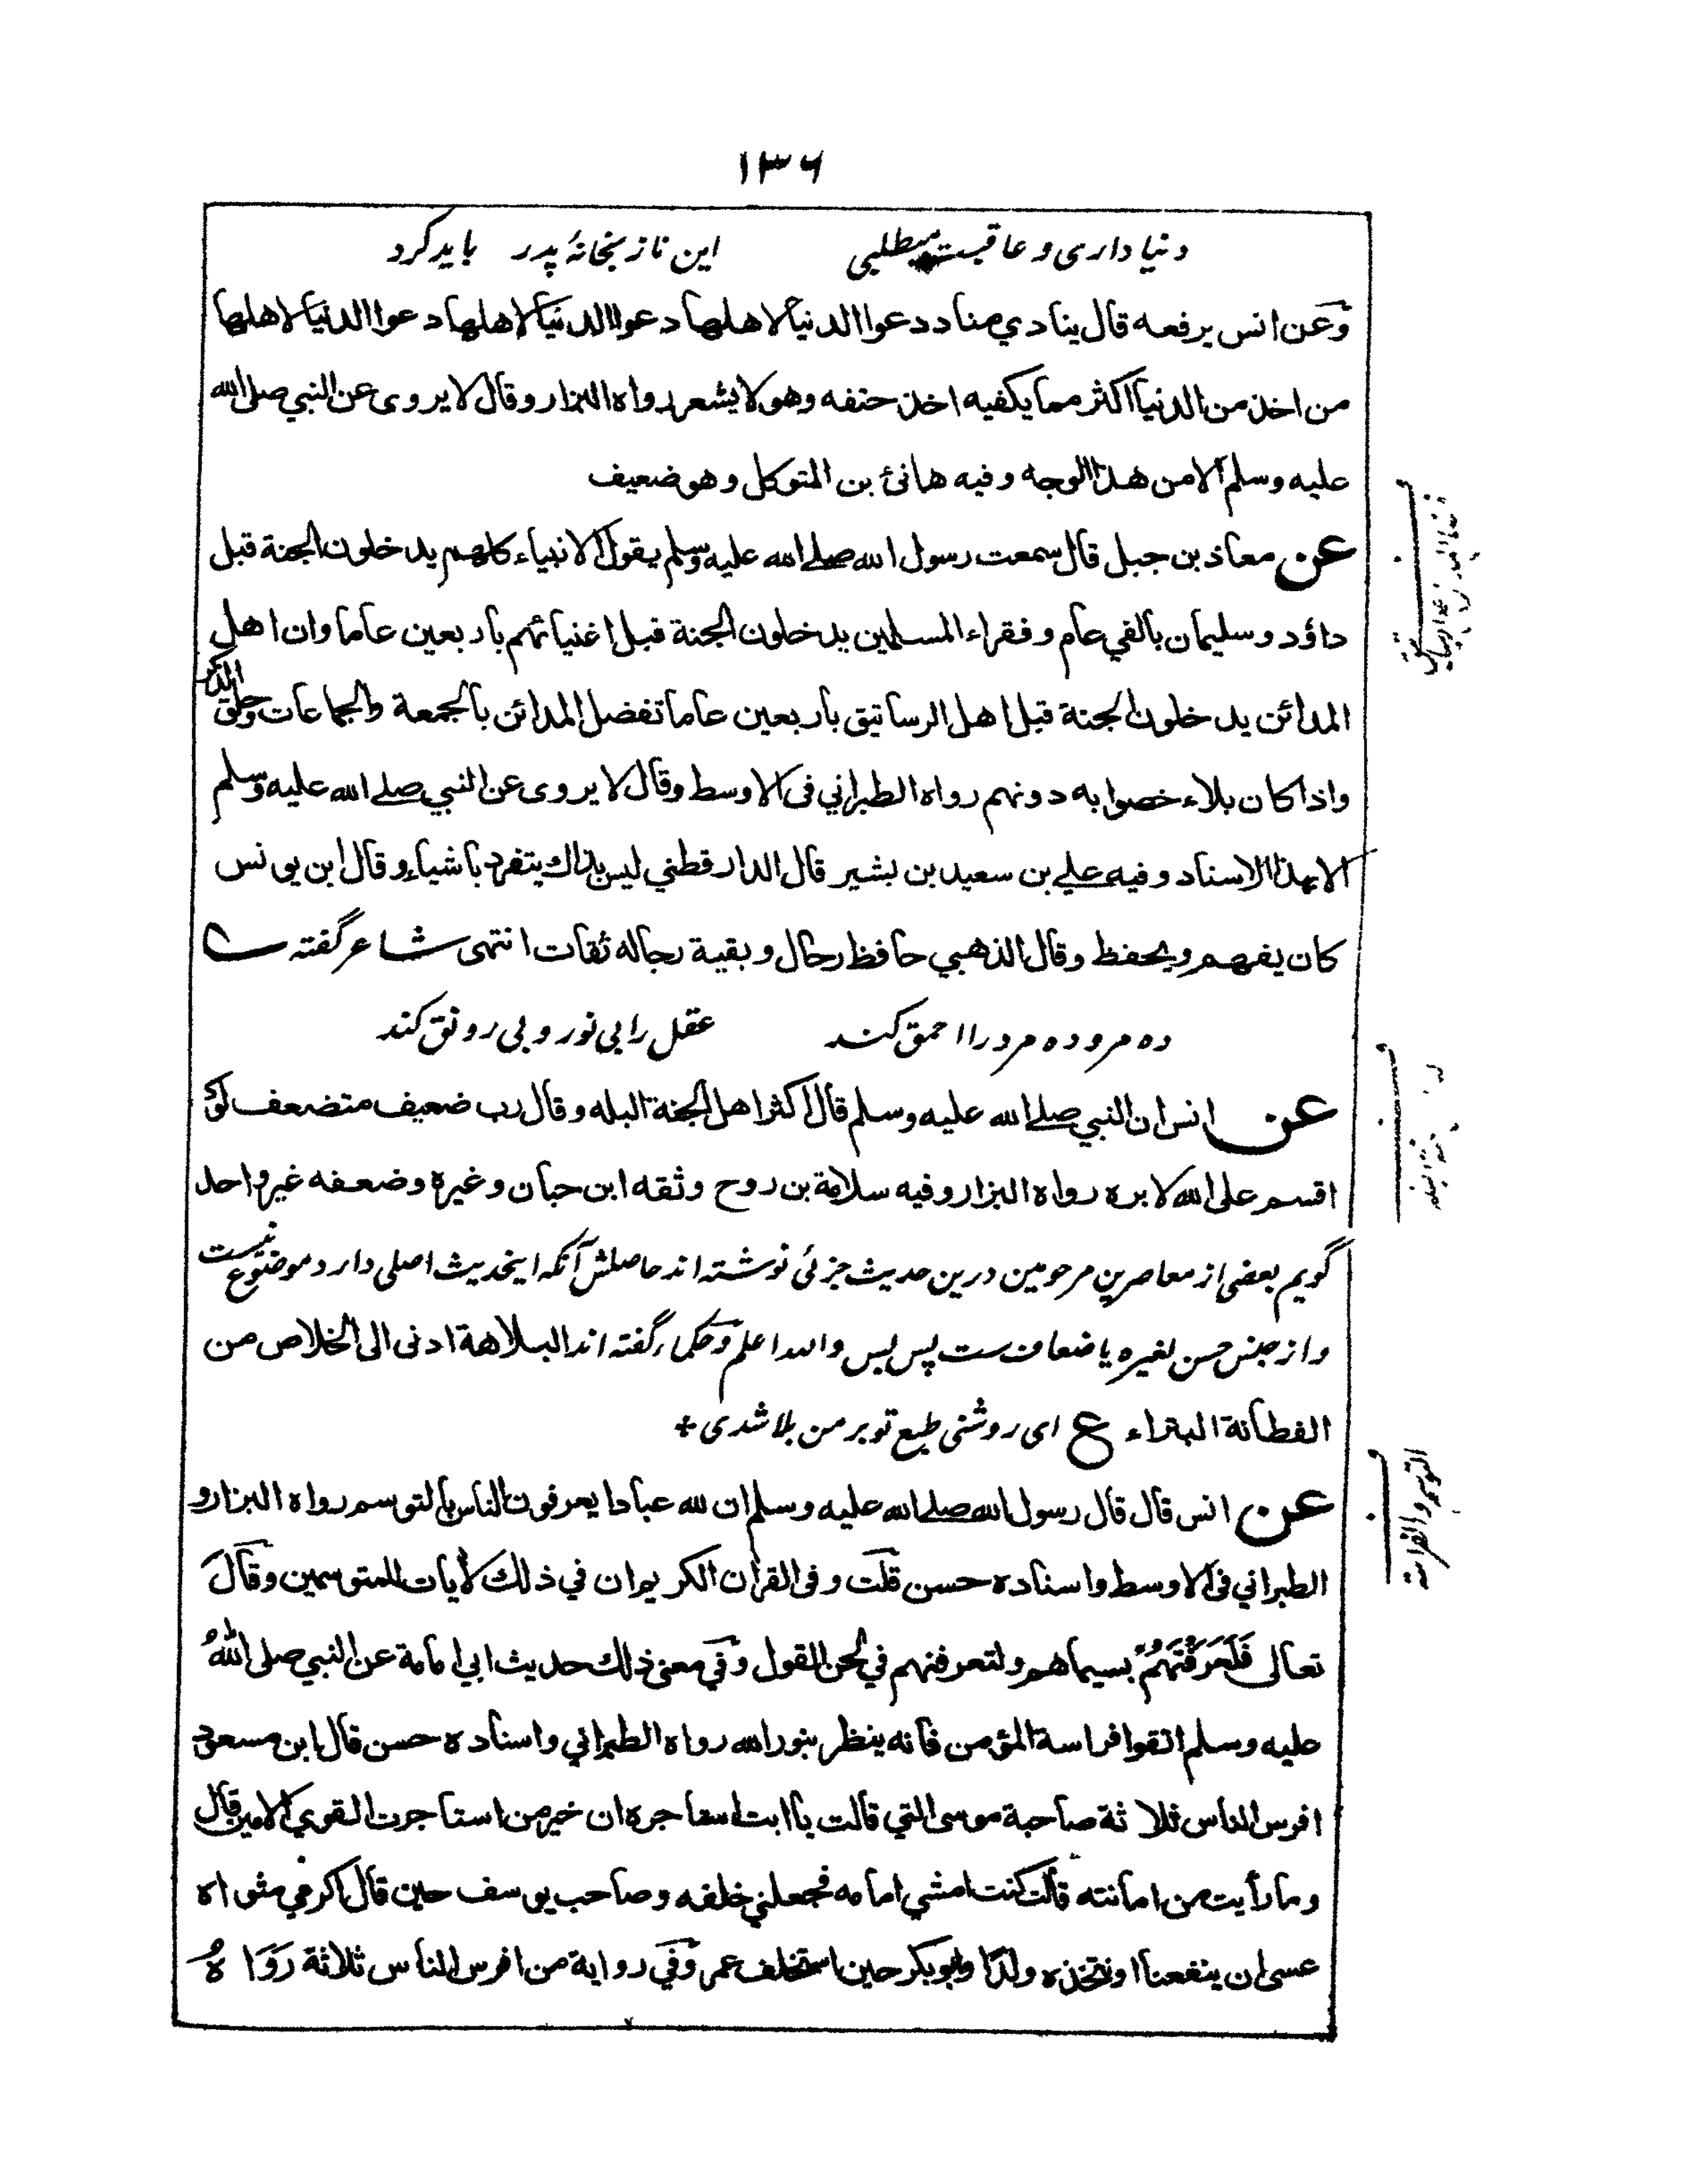 ۱۳۶
دنیا داری و عاقبت میطلبی این ناز بخانۂ پدر باید کرد
وعن انس يرفعه قال ينادي مناد دعوا الدنيا لاهلها دعوا الدنيا لاهلها دعوا الدنيا لاهلها
من اخذ من الدنيا اكثر مما يكفيه اخذ حتفه وهو لا يشعر رواه البزار وقال لا يروى عن النبي صلى الله
عليه وسلم الا من هذا الوجه وفيه هانئ بن المتوكل وهو ضعيف
عن معاذ بن جبل قال سمعت رسول الله صلے الله عليه وسلم يقول الانبياء كلهم يدخلون الجنة قبل
داؤد وسليمان بالفي عام وفقراء المسلمين يدخلون الجنة قبل اغنيائهم باربعين عاما وان اهل
المدائن يدخلون الجنة قبل اهل الرساتيق باربعين عاما تفضل المدائن بالجمعة والجماعات وحلق الذكر
واذا كان بلاء خصوا به دونهم رواه الطبراني فى الاوسط وقال لا يروى عن النبي صلے الله عليه وسلم
الا بهذا الاسناد وفيه علے بن سعيد بن بشير قال الدارقطني ليس بذاك يتفرد باشياء وقال ابن يونس
كان يفهم ويحفظ وقال الذهبي حافظ رحال وبقية رجاله ثقات انتهى شاعر گفتہ
ده مرو ده مرد را احمق کند عقل را بی نور و بی رونق کند
عن انس ان النبي صلے الله عليه وسلم قال اكثر اهل الجنة البله وقال رب ضعيف متضعف لو
اقسم على الله لابره رواه البزار وفيه سلامة بن روح وثقه ابن حبان وغيره وضعفه غير واحد
گویم بعضی از معاصرین مرحومین درین حدیث جزئی نوشته اند حاصلش آنکه اینحدیث اصلی دارد موضوع نیست
و از جنس حسن لغیره یا ضعاف ست پس بس والله اعلم وحکماء گفته اند البلاهة ادنى الى الخلاص من
الفطانة البتراء ع ای روشنی طبع تو بر من بلا شدی +
عن انس قال قال رسول الله صلے الله عليه وسلم ان لله عبادا يعرفون الناس بالتوسم رواه البزار و
الطبراني فى الاوسط واسناده حسن قلت وفى القران الكريم ان في ذلك لأيات للمتوسمين وقال
تعالى فَلَعَرَفْتَهُمْ بسيماهم ولتعرفنهم في لحن القول وفي معنى ذلك حديث ابي امامة عن النبي صلى اللهُ
عليه وسلم اتقوا فراسة المؤمن فانه ينظر بنور الله رواه الطبراني واسناده حسن قال ابن مسعود
افرس الناس ثلاثة صاحبة موسى التي قالت يا ابت استاجره ان خير من استاجرت القوي الامين قال
وما رأيت من امانته قالت كنت امشي امامه فجعلني خلفه وصاحب يوسف حين قال اكرمي مثواه
عسى ان ينفعنا او نتخذه ولدًا وابو بكر حين استخلف عمر وفي رواية من افرس الناس ثلاثة رَوَاهُ
ف التوسم والفراسة